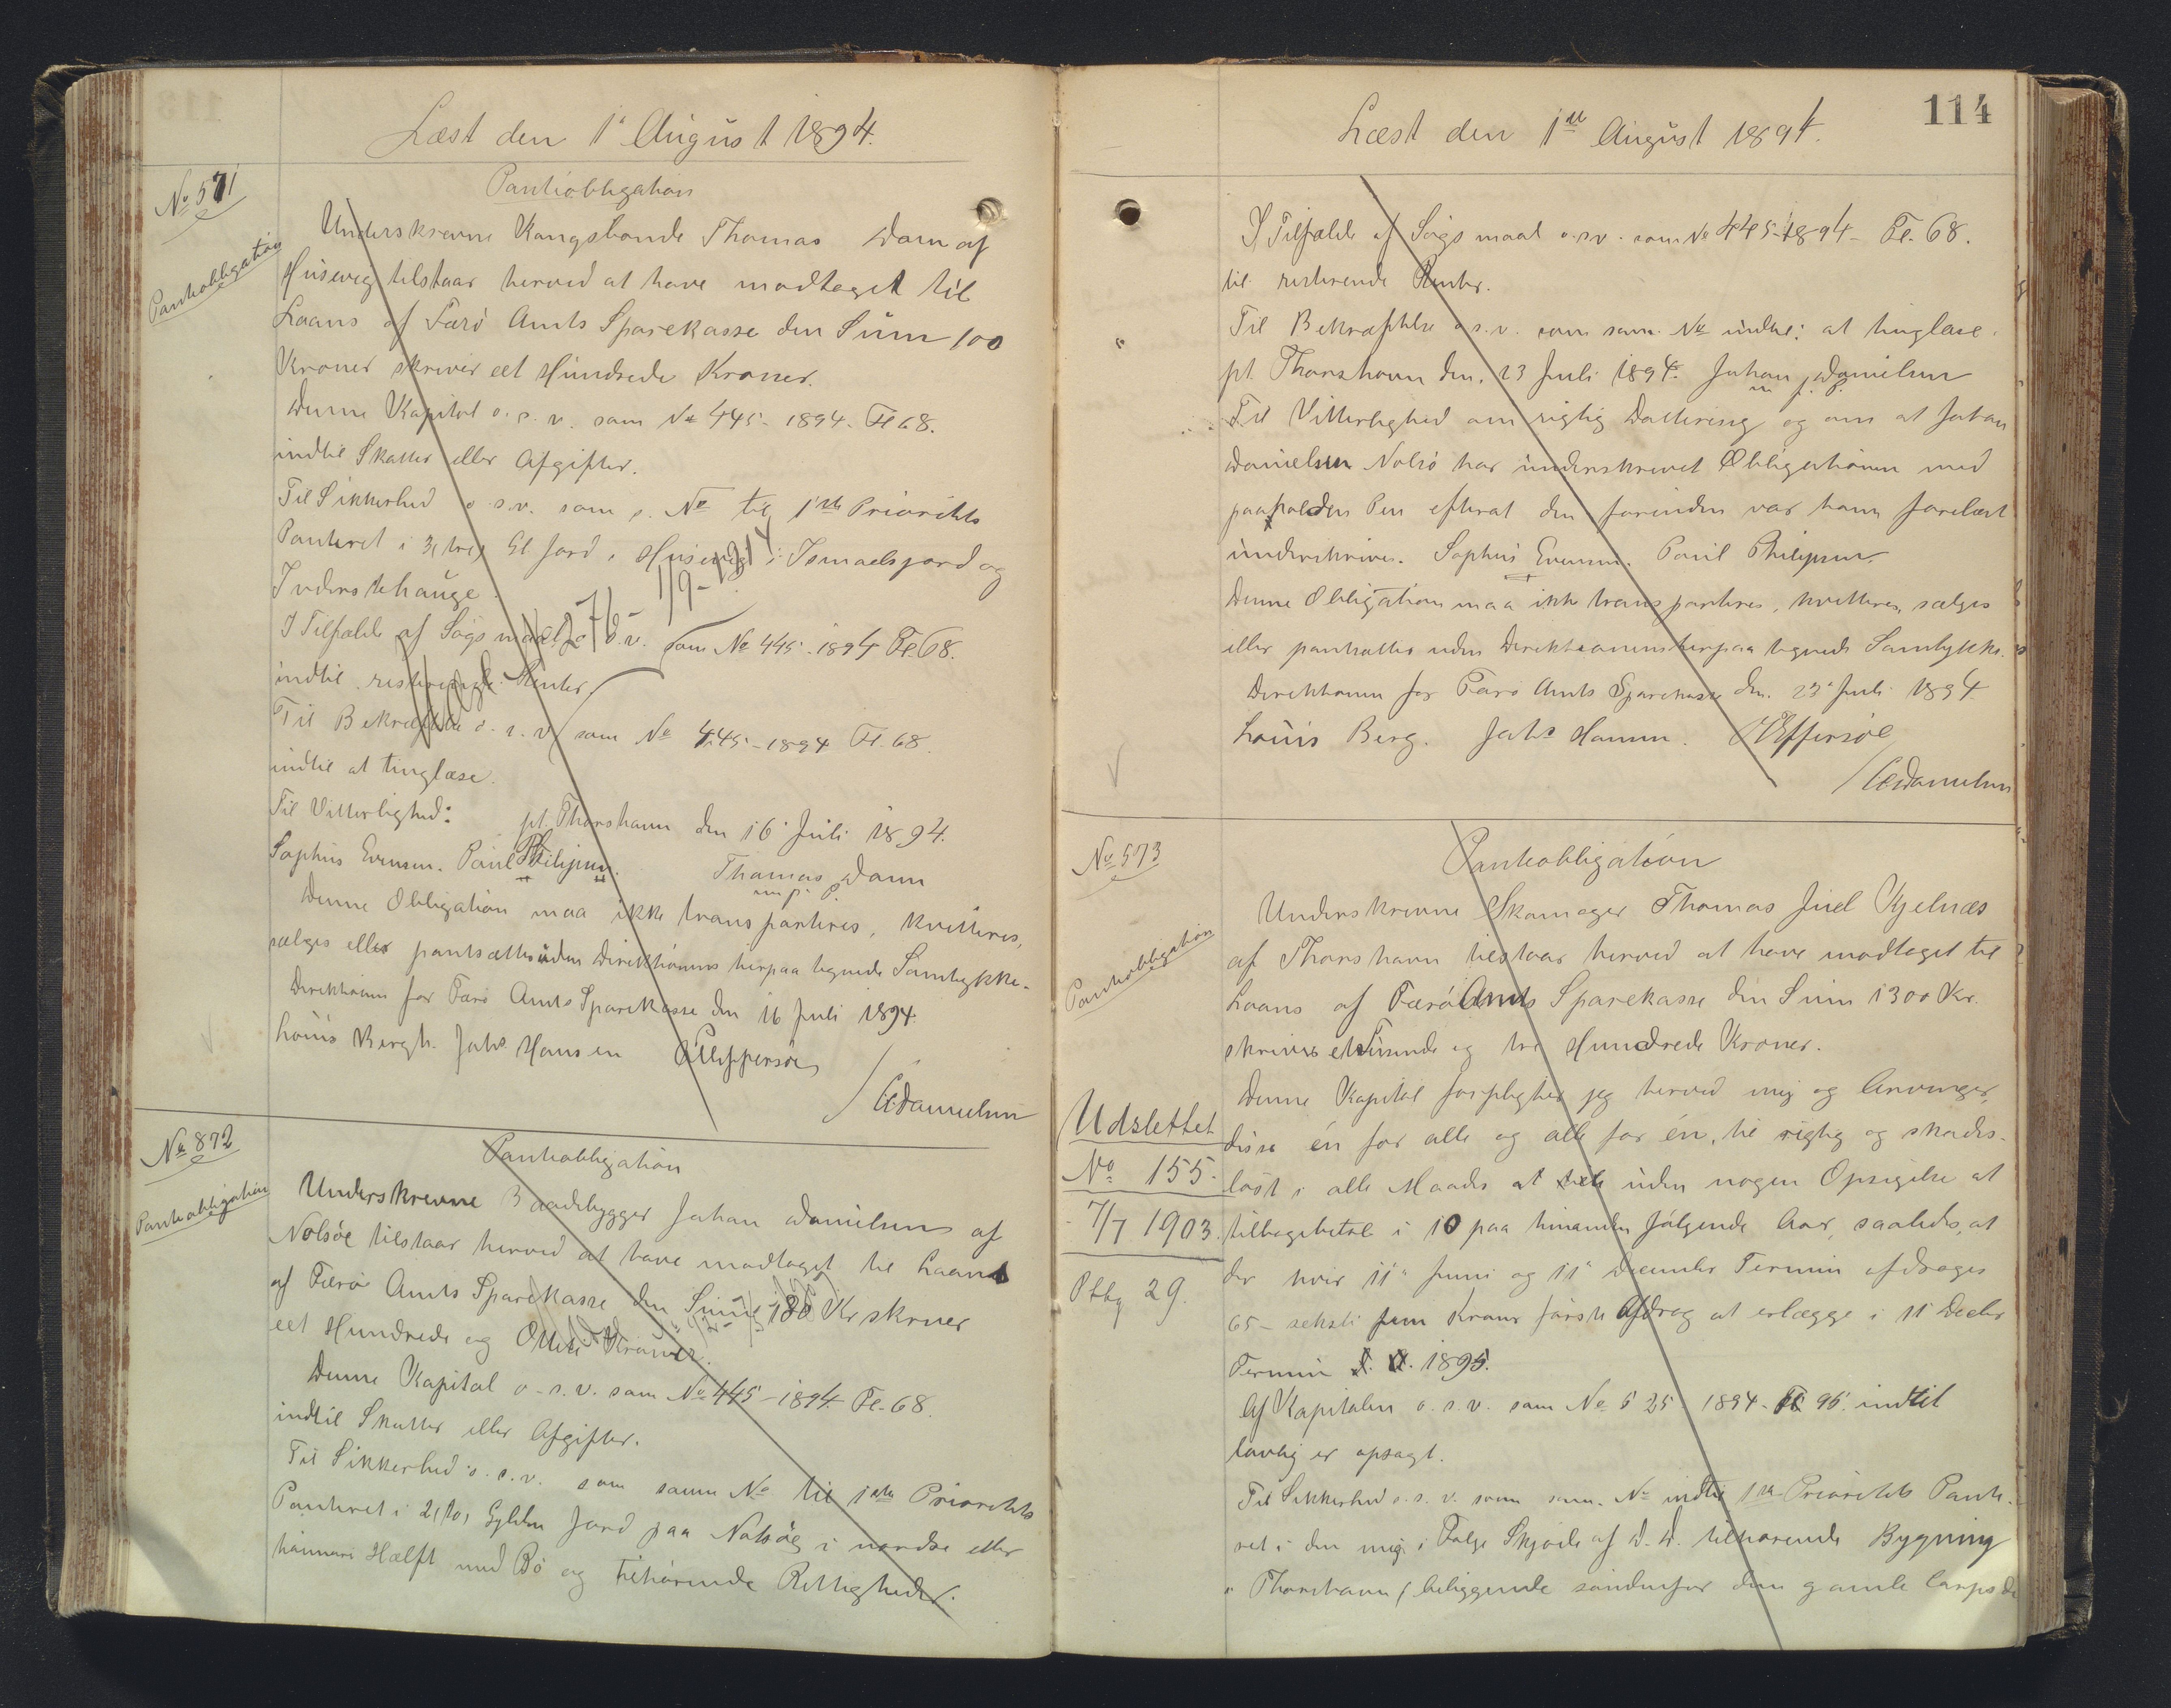 Læst den 1' August 1894.
No 571
Pantobligation
Pantobligation
Underskrevne Kongsbonde Thomas Dam af
Húsevig tilstaar herved at have modtaget til
Laans af Færö Amts Sparekasse den Sum 100
Kroner skriver eet Hundrede Kroner.
Denne Kapital o. s. v. som No 445 - 1894. Fl 68.
indtil Skatter eller Afgifter.
Til Sikkerhed o. s. v. som s. No til 1ste Prioritets
Panteret i 3, tre, Gl. Jord i Húsevig i Ismaelsjord og
I Tilfælde af Sögsmaal o. s. v. som No 445 - 1894 Fl. 68.
indtil resterende Renter.
Til Bekræftelse o. s. v. som No 445 - 1894 Fl. 68.
indtil at tinglæse.
Til Vitterlighed: pt. Thorshavn den 16' Júli 1894.
Sophus Evensen. Poul Philipsen. Thomas Dam
m. p. P.
Denne Obligation maa ikke transporteres, kvitteres,
sælges eller pantsættes uden Direktionens herpaa tegnede Samtykke.
Direktionen for Færö Amts Sparekasse den 16 Juli 1894.
Louis Bergh. Johs Hansen O Effersöe
/ CDanielsen
No 872
Pantobligation
Pantobligation
Underskrevne Baadebygger Johan Danielsen af
Nolsöe tilstaar herved at have modtaget til Laans
af Færö Amts Sparekasse den Súm 180 Kr skriver
eet Hundrede og Otteti Kroner.
Denne Kapital o. s. v. som No 445 - 1894 Fl. 68.
indtil Skatter eller Afgifter.
Til Sikkerhed o. s. v. som samme No til 1ste Prioritets
Panteret i 2, to, Gylden Jord paa Nolsöe i nordre eller
Hælft med Bö og tilhörende Rettigheder.
114
Læst den 1ste August 1894.
I Tilfælde af Sögsmaal o. s. v. som No 445 - 1894 - Fl. 68.
til resterende Renter.
Til Bekræftelse o. s. v. som sam. No indtil: at tinglæse.
pt. Thorshavn den. 23 Juli 1894. Johan Danielsen
m. p. P.
Til Vitterlighed om rigtig Dattering og om at Johan
Danielsen Nolsö har underskrevet Obligationen med
paaholden Pen efterat den forinden var ham forelæst
underskrives. Sophus Evensen. Poul Philipsen.
Denne Obligation maa ikke transporteres, kvitteres, sælges
eller pantsættes uden Direktionens herpaa tegnede Samtykke.
Direktionen for Færö Amts Sparekasse den. 23' Juli 1894
Louis Berg. Johs Hansen. O Effersöe
/ CDanielsen
No 573
Pantobligation
Pantobligation
Underskrevne Skomager Thomas Juel Kjelnæs
af Thorshavn tilstaar herved at have modtaget til
Laans af Færö Amts Sparekasse den Súm 1300 Kr.
skriver et Túsinde og tre Hundrede Kroner.
Denne Kapital forpligter jeg herved mig og Arvinger,
disse én for alle og alle for én, til rigtig og skades-
löst i alle Maader at uden nogen Opsigelse at
tilbagebetale i 10 paa hinanden fölgende Aar, saaledes, at
der hver 11' Juni og 11' December Termin afdrages
65 - seksti fem Kroner förste Afdrag at erlægge i 11 Decbr
Termin 1895.
Af Kapitalen o. s. v. som No 525 - 1894 - Fl 95 indtil
lovlig er opsagt.
Til Sikkerhed o. s. v. som sam. No indtil 1ste Prioritets Pante-
ret i den mig i Fölge Skjöde af D. D. tilhörende Bygning
i Thorshavn (beliggende söndenfor den gamle
Udslettet
No 155.
7/7 1903.
Ptbg 29.